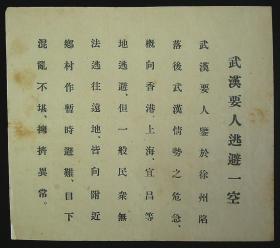 武漢要人逃避一空
武漢要人鑒於徐州陷
落後武漢情勢之危急、
概向香港、上海、宜昌等
地逃避、但一般民衆無
法逃往遠地、皆向附近
鄉村作暫時避難、目下
混亂不堪、擁擠異常。